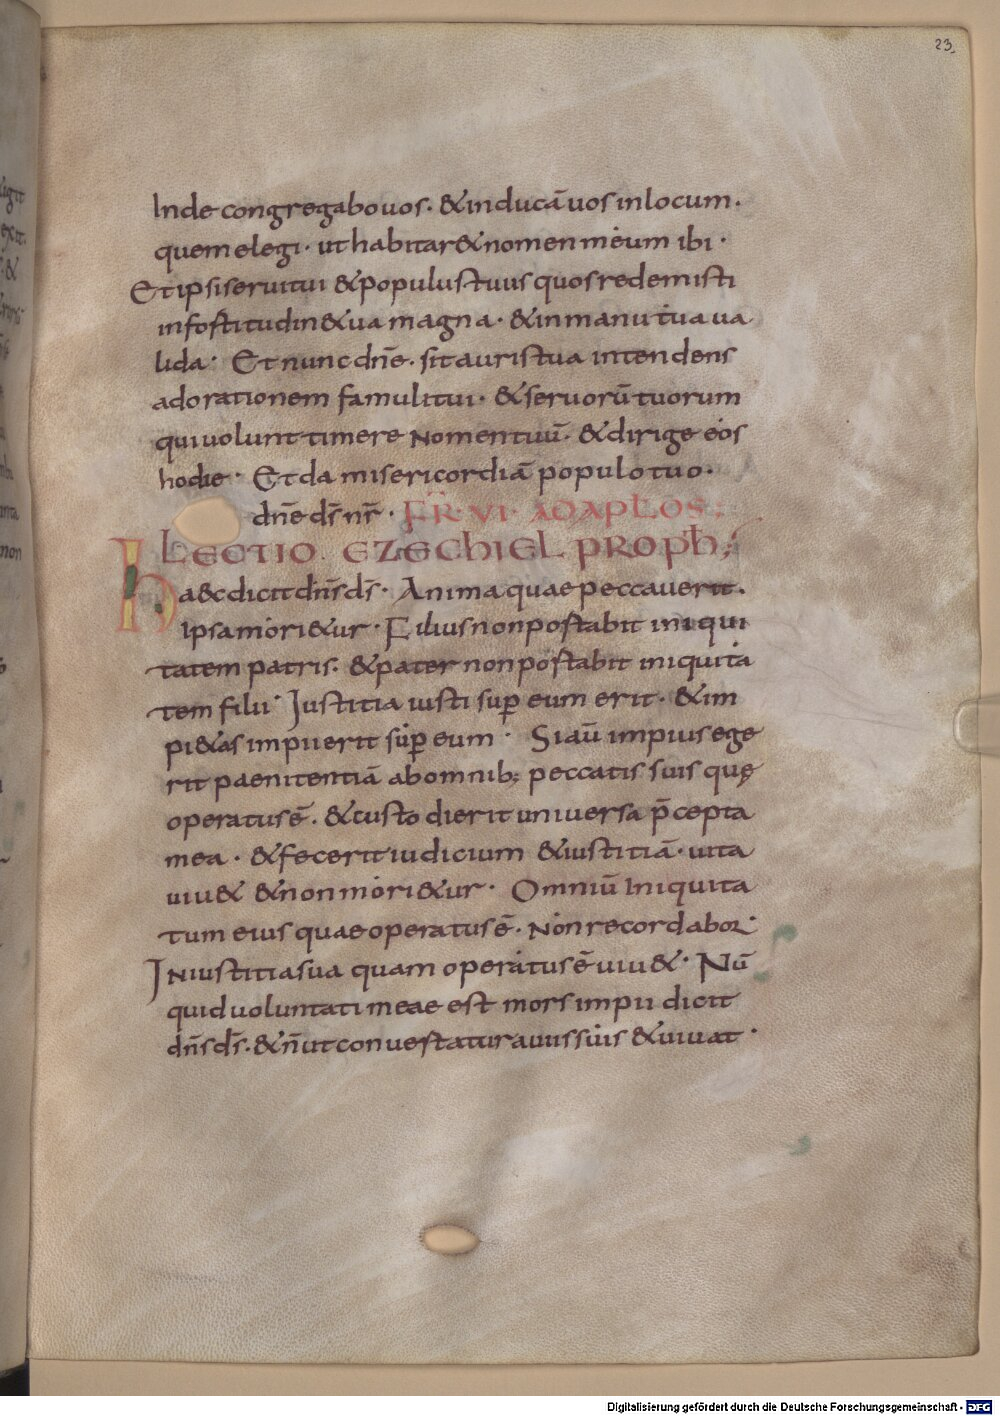 23
Inde congregabo uos· & inducā uos in locum·
quem elegi· ut habitar& nomen meum ibi·
Et ipsi serui tui & populus tuus quos redemisti
in fostitudin& ua magna· & in manu tua ua
lida· Et nunc dn̄e· sit auris tua intendens
ad orationem famuli tui· & seruorū tuorum
qui uolunt timere nomen tuū· & dirige eos
hodie· Et da misericordiā populo tuo·
dn̄e ds̄ nr̄· FR̄· VI· AD APLOS:
LECTIO EZECHIEL PROPH;
haec dicit dn̄s ds̄· Anima quae peccauerit·
Ipsa mori&ur· Filius non postabit iniqui
tatem patris· & pater non postabit iniquita
tem filii· Iustitia iusti sup̄ eum erit· & im
pi&as impii erit sup̄ eum· Si aū impius ege
rit paenitentiā ab omnib; peccatis suis quę
operatus ē· & custodierit uniuersa p̄cepta
mea· & fecerit iudicium & iustitiā· uita
uiu& & non mori&ur· Omniū Iniquita
tum eius quae operatus ē· Non recordabor·
IN iustitia sua quam operatus ē uiu&· Nū
quid uoluntati meae est mors impii dicit
dn̄s ds̄· & n̄ ut conuestatur a uiis suis & uiuat·
Digitalisierung gefördert durch die Deutsche Forschungsgemeinschaft - DFG